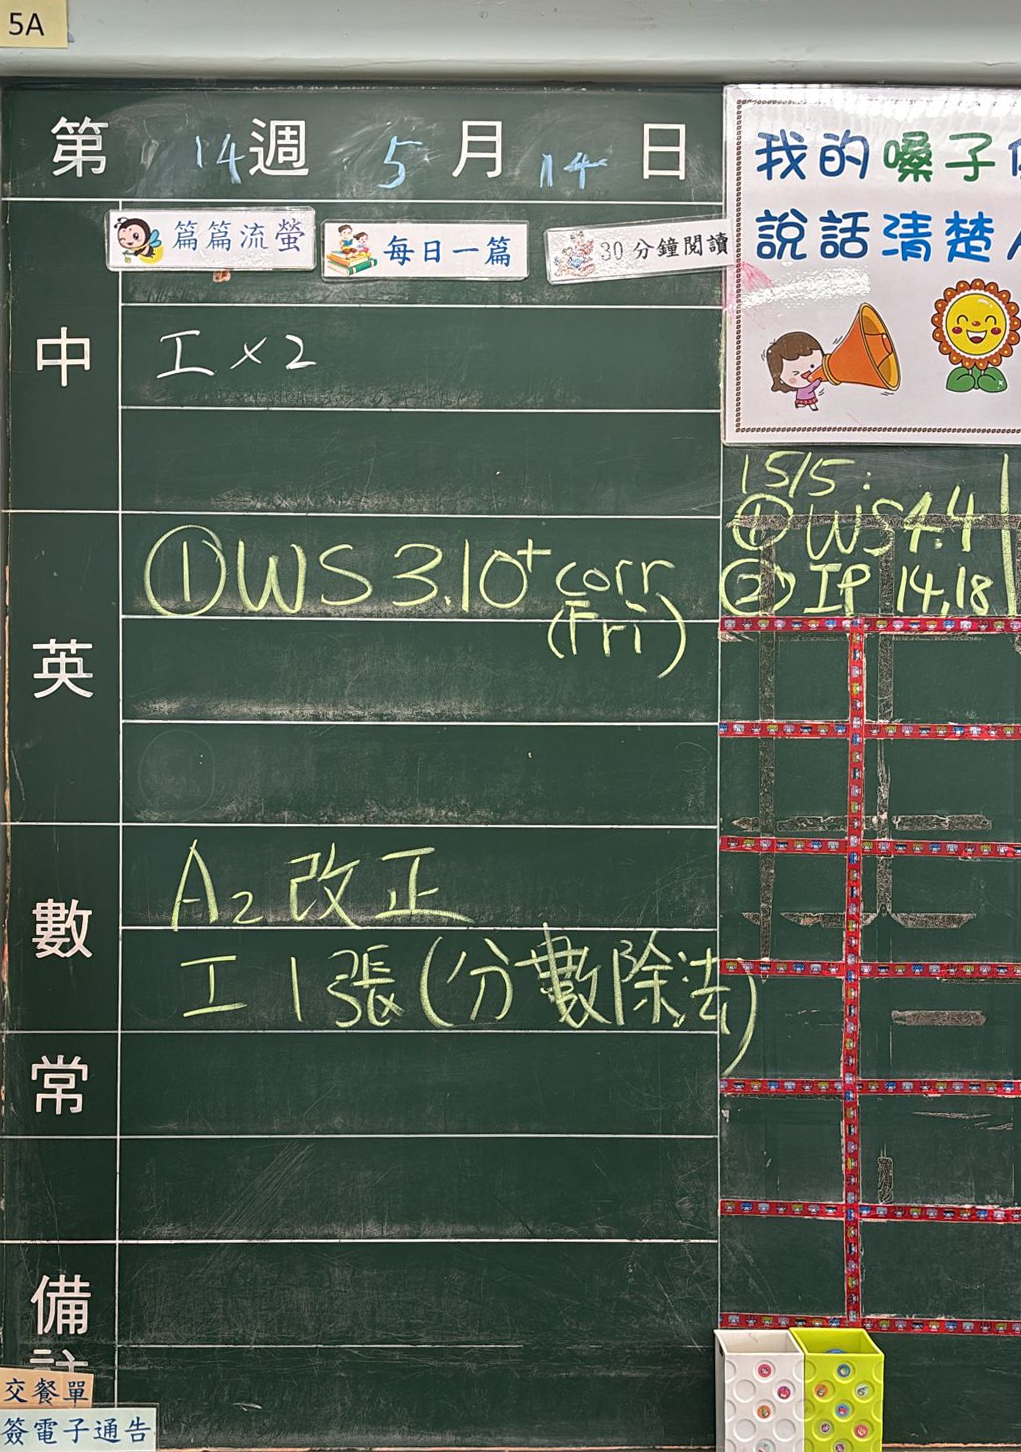 5A
第 14 週 5 月 14 日
篇篇流螢 每日一篇 30分鐘閱讀
中
工 × 2
英
① WS 3.10 + corr
(Fri)
數
A2 改正
工 1 張 (分數除法)
常
備註
交餐單
簽電子通告
我的嗓子
說話清楚
15/5:
① WS 4.4
② IP 14,18